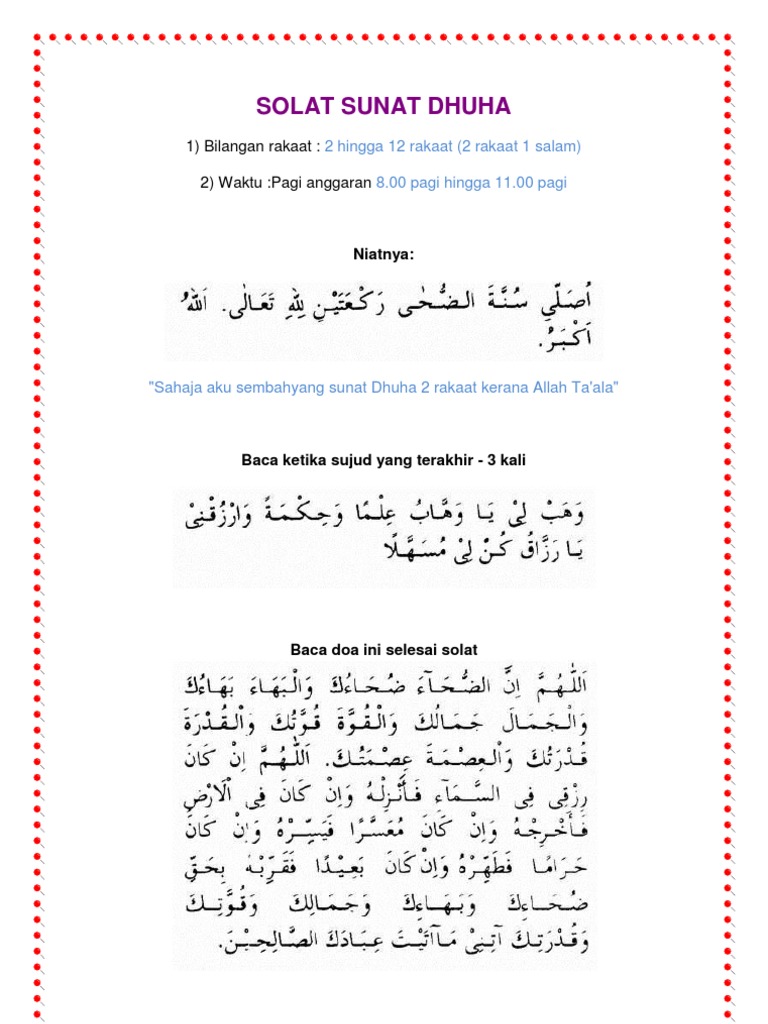 SOLAT SUNAT DHUHA
1) Bilangan rakaat : 2 hingga 12 rakaat (2 rakaat 1 salam)
2) Waktu :Pagi anggaran 8.00 pagi hingga 11.00 pagi
Niatnya:
اُصَلِّي سُنَّةَ الضُّحٰى رَكْعَتَيْنِ لِلّٰهِ تَعَالٰى. اَللّٰهُ
اَكْبَرُ.
"Sahaja aku sembahyang sunat Dhuha 2 rakaat kerana Allah Ta'ala"
Baca ketika sujud yang terakhir - 3 kali
وَهَبْ لِيْ يَا وَهَّابُ عِلْمًا وَحِكْمَةً وَارْزُقْنِيْ
يَا رَزَّاقُ كُنْ لِيْ مُسَهَّلًا
Baca doa ini selesai solat
اَللّٰهُمَّ اِنَّ الضُّحَآءَ ضُحَاءُكَ وَالْبَهَاءَ بَهَاءُكَ
وَالْجَمَالَ جَمَالُكَ وَالْقُوَّةَ قُوَّتُكَ وَالْقُدْرَةَ
قُدْرَتُكَ وَالْعِصْمَةَ عِصْمَتُكَ. اَللّٰهُمَّ اِنْ كَانَ
رِزْقِى فِى السَّمَآءِ فَأَنْزِلْهُ وَاِنْ كَانَ فِى الْاَرْضِ
فَأَخْرِجْهُ وَاِنْ كَانَ مُعَسَّرًا فَيَسِّرْهُ وَاِنْ كَانَ
حَرَامًا فَطَهِّرْهُ وَاِنْ كَانَ بَعِيْدًا فَقَرِّبْهُ بِحَقِّ
ضُحَاءِكَ وَبَهَاءِكَ وَجَمَالِكَ وَقُوَّتِكَ
وَقُدْرَتِكَ آتِنِىْ مَآاَتَيْتَ عِبَادَكَ الصَّالِحِيْنَ.